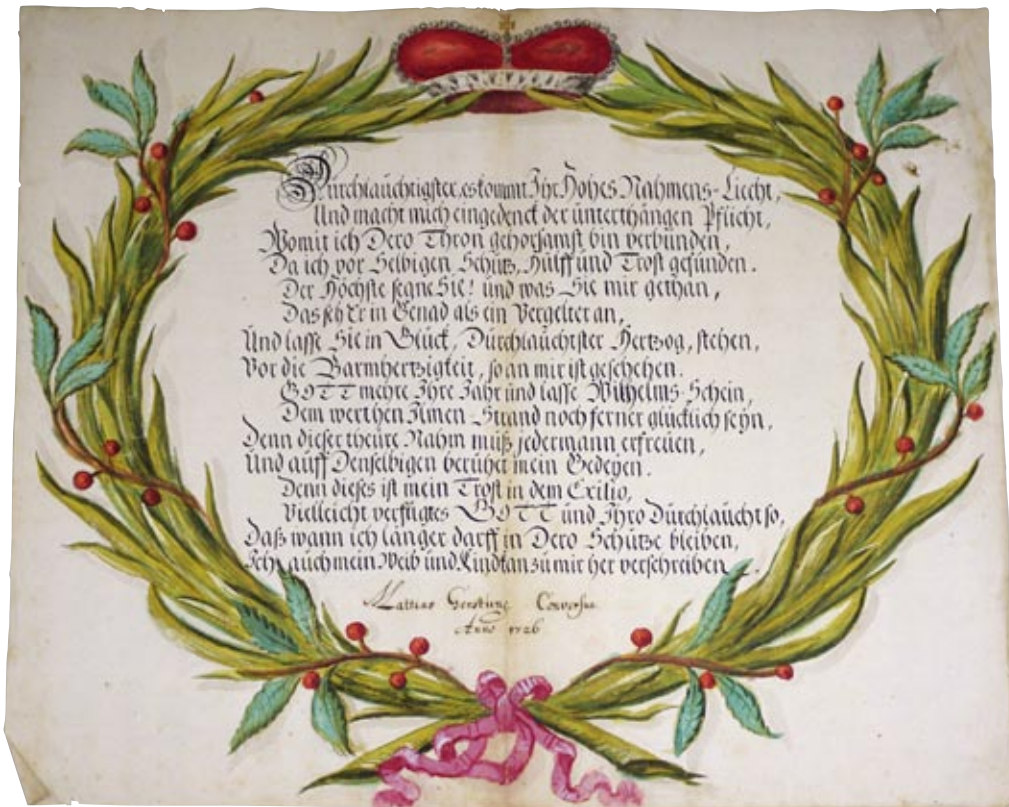 Durchlauchtigster, es kommt Ihr Hohes Nahmens-Liecht,
Und macht mich eingedenck der unterthängen Pflicht,
Womit ich Dero Thron gehorsamst bin verbunden,
Da ich vor Selbigen Schutz, Hülff und Trost gefunden.
Der Höchste segne Sie! und was Sie mir gethan,
Das seh Er in Genad als ein Vergelter an,
Und lasse Sie in Glück, Durchlauchtster Hertzog, stehen,
Vor die Barmhertzigkeit, so an mir ist geschehen.
GOTT mehre Ihre Jahr und lasse Wilhelms-Schein,
Dem werthen Ilmen-Strand noch ferner glücklich seyn,
Denn dieser theure Nahm muß jedermann erfreuen,
Und auff Denselbigen beruhet mein Gedeyen.
Denn dieses ist mein Trost in dem Exilio,
Vielleicht verfügt es GOTT und Ihro Durchlaucht so,
Daß wann ich länger darff in Dero Schutze bleiben,
Ich auch mein Weib und Kind kan zu mir her verschreiben.
Conversus
Anno 1726